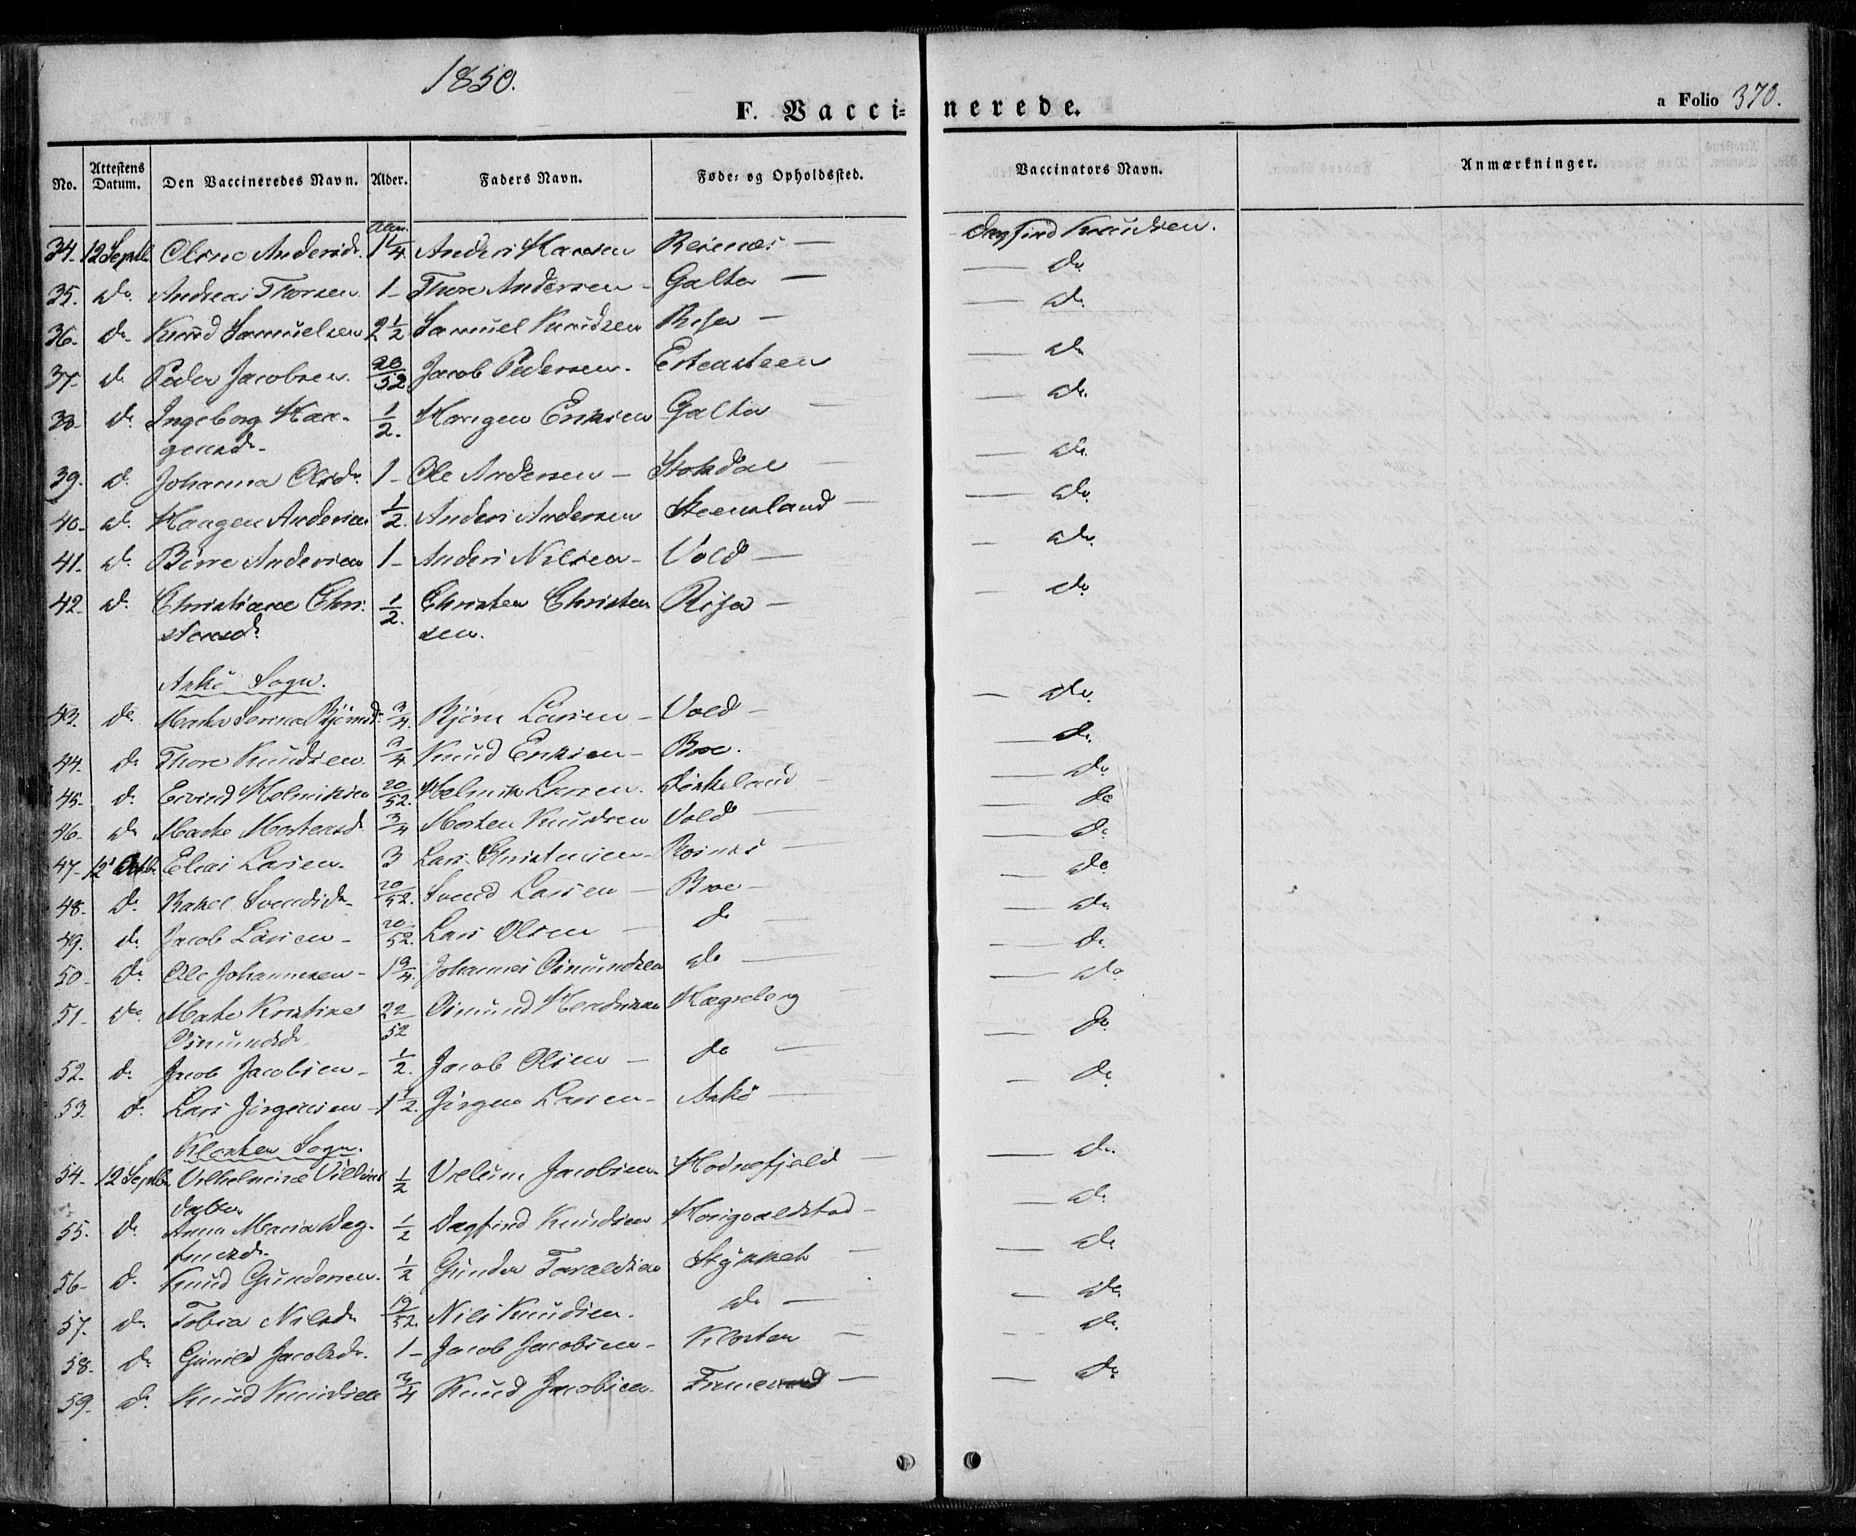 1850.
F. Vaccinerede.
a Folio 370.
No. Attestens Datum. Den Vaccineredes Navn. Alder. Faders Navn. Føde- og Opholdssted. Vaccinators Navn. Anmærkninger.
34. 12 Septb. Olene Andersd. 1 1/4 Anders Hansen Reienæs — Dagfind Knudsen.
35. do. Andreas Thorsen 1 - Thore Andersen - Galta — — do.
36. do Knud Samuelsen 2 1/2 Samuel Knudsen Risa — — do.
37. do Peder Jacobsen. 28/52 Jacob Pedersen. Ertensteen — do.
38. do Ingeborg Haa- 1/2. Haagen Eriksen Galta — — do.
gensd.
39. do Johanna Olsd. 1 - Ole Andersen — Stokdal — — do.
40. do. Haagen Andersen 1/2. Anders Andersen Steensland — — do.
41. do Børre Andersen 1 - Anders Nilsen - Vold — — do.
42. do. Christiane Chri- 1/2. Christen Christen Risa — — do.
stensd. sen.
Askø Sogn.
43. do Marta Serina Bjørnsd. 3/4. Bjørn Larsen — Vold — — do.
44. do Thore Knudsen 3/4 Knud Eriksen — Broe. — do.
45. do. Eivind Helmiksen 20/52. Helmik Larsen. Dirkeland — — do.
46. do Marte Mortensd. 3/4 Morten Knudsen Vold — — do
47. 12 Octb. Elias Larsen. 3 Lars Christensen - — do.
48. do. Rakel Svendsd. 20/52. Svend Larsen — Broe — — do.
49. do. Jacob Larsen - 20/52. Lars Olsen — do — — do.
50. do. Ole Johannesen - 1 3/4. Johannes Osmundsen do — — do.
51. do Marte Kristine 22/52 Osmund Hendriksen Hægreberg — — do
Osmundsd.
52. do. Jacob Jacobsen - 1/2. Jacob Olsen — do — — do.
53. do. Lars Jørgensen - 1 1/2. Jørgen Larsen - Askø — — do.
Kloster Sogn.
54. 12 Septb. Vilhelmine Villums 1/2 Villum Jacobsen. Hodnefjeld — — do.
datter
55. do. Anna Maria Dag- 1/2 Dagfind Knudsen Harigvaldstad — — do.
finsd.
56. do. Knud Gundersen. 1/2 Gunder Taraldsen Stykket — — do.
57. do. Tobia Nilsd. 19/52. Nils Knudsen. do — — do.
58. do Gunild Jacobsd. 1 - Jacob Jacobsen - Kloster — — do.
59. do. Knud Knudsen 3/4 Knud Jacobsen. — — do.